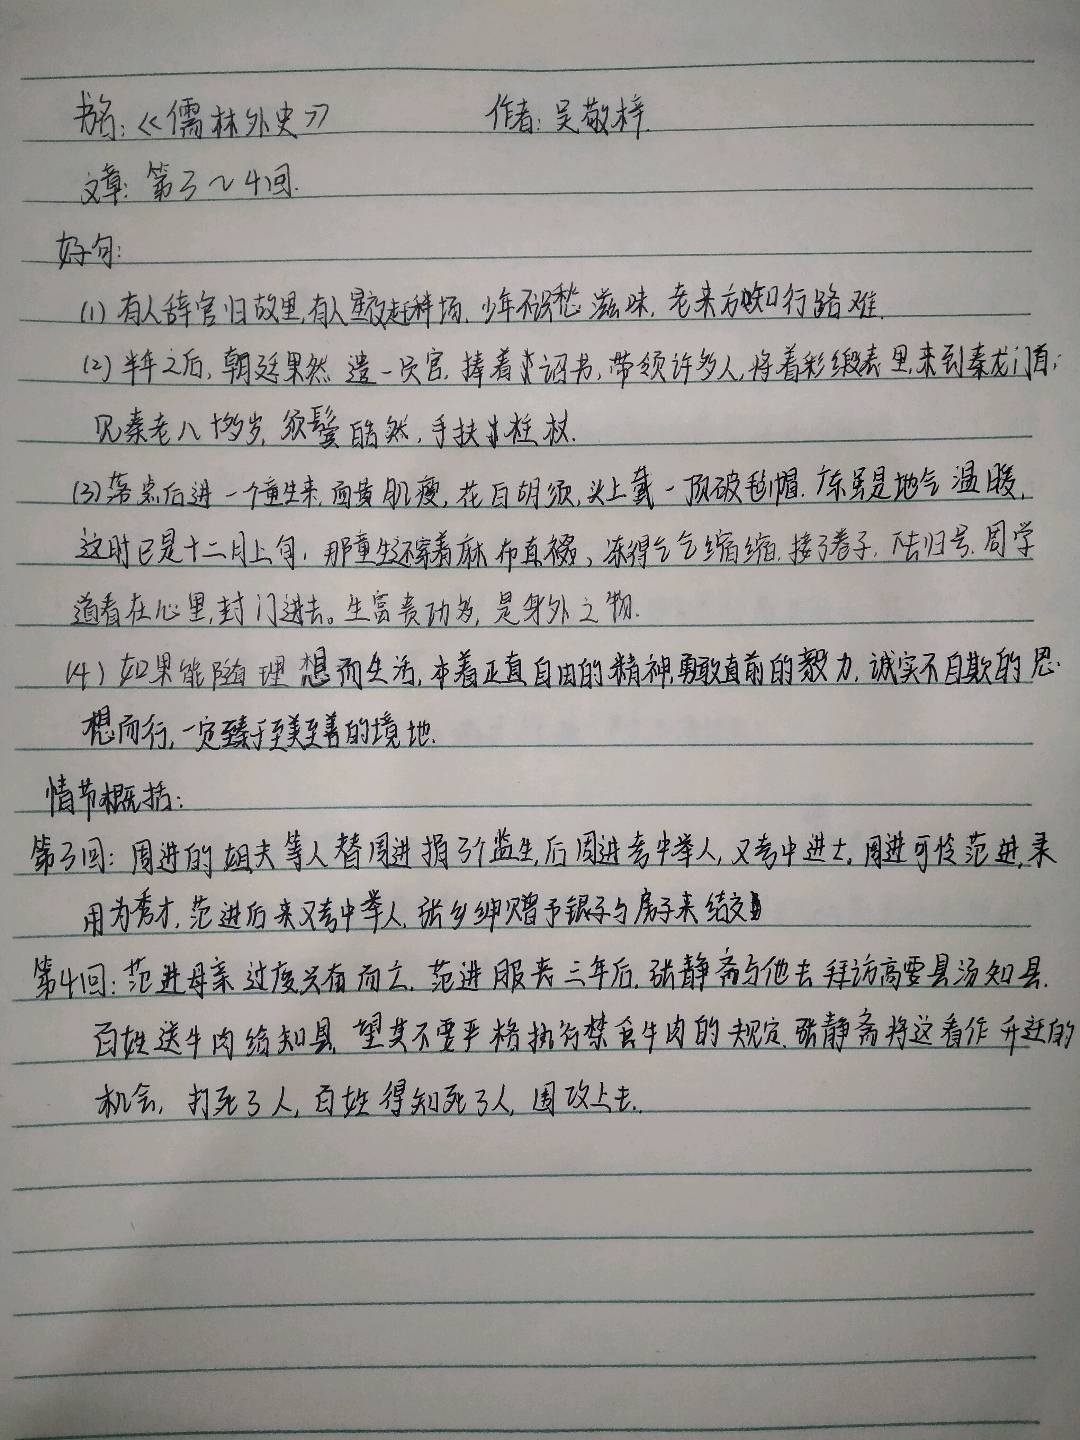 书名:《儒林外史》 作者:吴敬梓.
文章:第3~4回.
好句:
(1)有人辞官归故里,有人星夜赶科场.少年不识愁滋味,老来方知行路难.
(2)半年之后,朝廷果然遣一员官,捧着诏书,带领许多人,将着彩缎表里,来到秦老门首;
见秦老八十多岁,须鬓皓然,手扶拄杖.
(3)落后点进一个童生来,面黄肌瘦,花白胡须,头上戴一顶破毡帽.广东虽是地气温暖,
这时已是十二月上旬,那童生还穿着麻布直裰、冻得乞乞缩缩.接了卷子,下去归号.周学
道看在心里,封门进去。生富贵功名,是身外之物.
(4)如果能随理想而生活,本着正直自由的精神,勇敢直前的毅力,诚实不自欺的思
想而行,一定臻于至美至善的境地.
情节概括:
第3回:周进的姐夫等人替周进捐了个监生,后周进考中举人,又考中进士,周进可怜范进,录
用为秀才,范进后来又考中举人,张乡绅赠予银子与房子来结交
第4回:范进母亲过度兴奋而亡.范进服丧三年后,张静斋与他去拜访高要县汤知县.
百姓送牛肉给知县,望其不要严格执行禁食牛肉的规定.张静斋将这看作升迁的
机会,打死了人,百姓得知死了人,围攻上去.